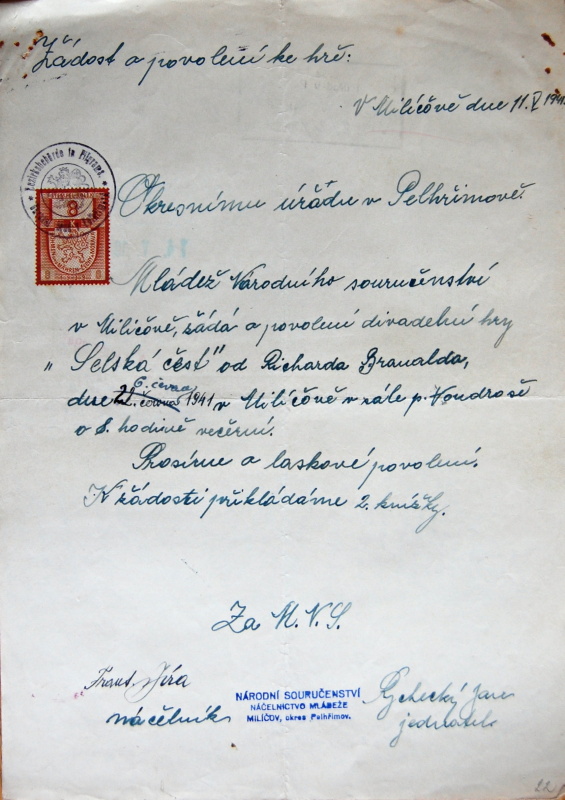 Žádost o povolení ke hře:
V Milíčově dne 11.V 1941.
Bezirksbehörde in Pilgrams.
8
K
8 8
Okresnímu úřadu v Pelhřimově.
Mládež Národního souručenství
v Milíčově, žádá o povolení divadelní hry
„Selská čest" od Richarda Branalda,
6. června
dne června 1941 v Milíčově v sále p. Voudrasě
o 8. hodině večerní.
Prosíme o laskavé povolení.
K žádosti přikládáme 2. knížky.
Za M.N.S.
Frant. Jíra
náčelník
NÁRODNÍ SOURUČENSTVÍ
NÁČELNICTVO MLÁDEŽE
MILÍČOV, okres Pelhřimov.
Rychecký Jan
jednatel
22